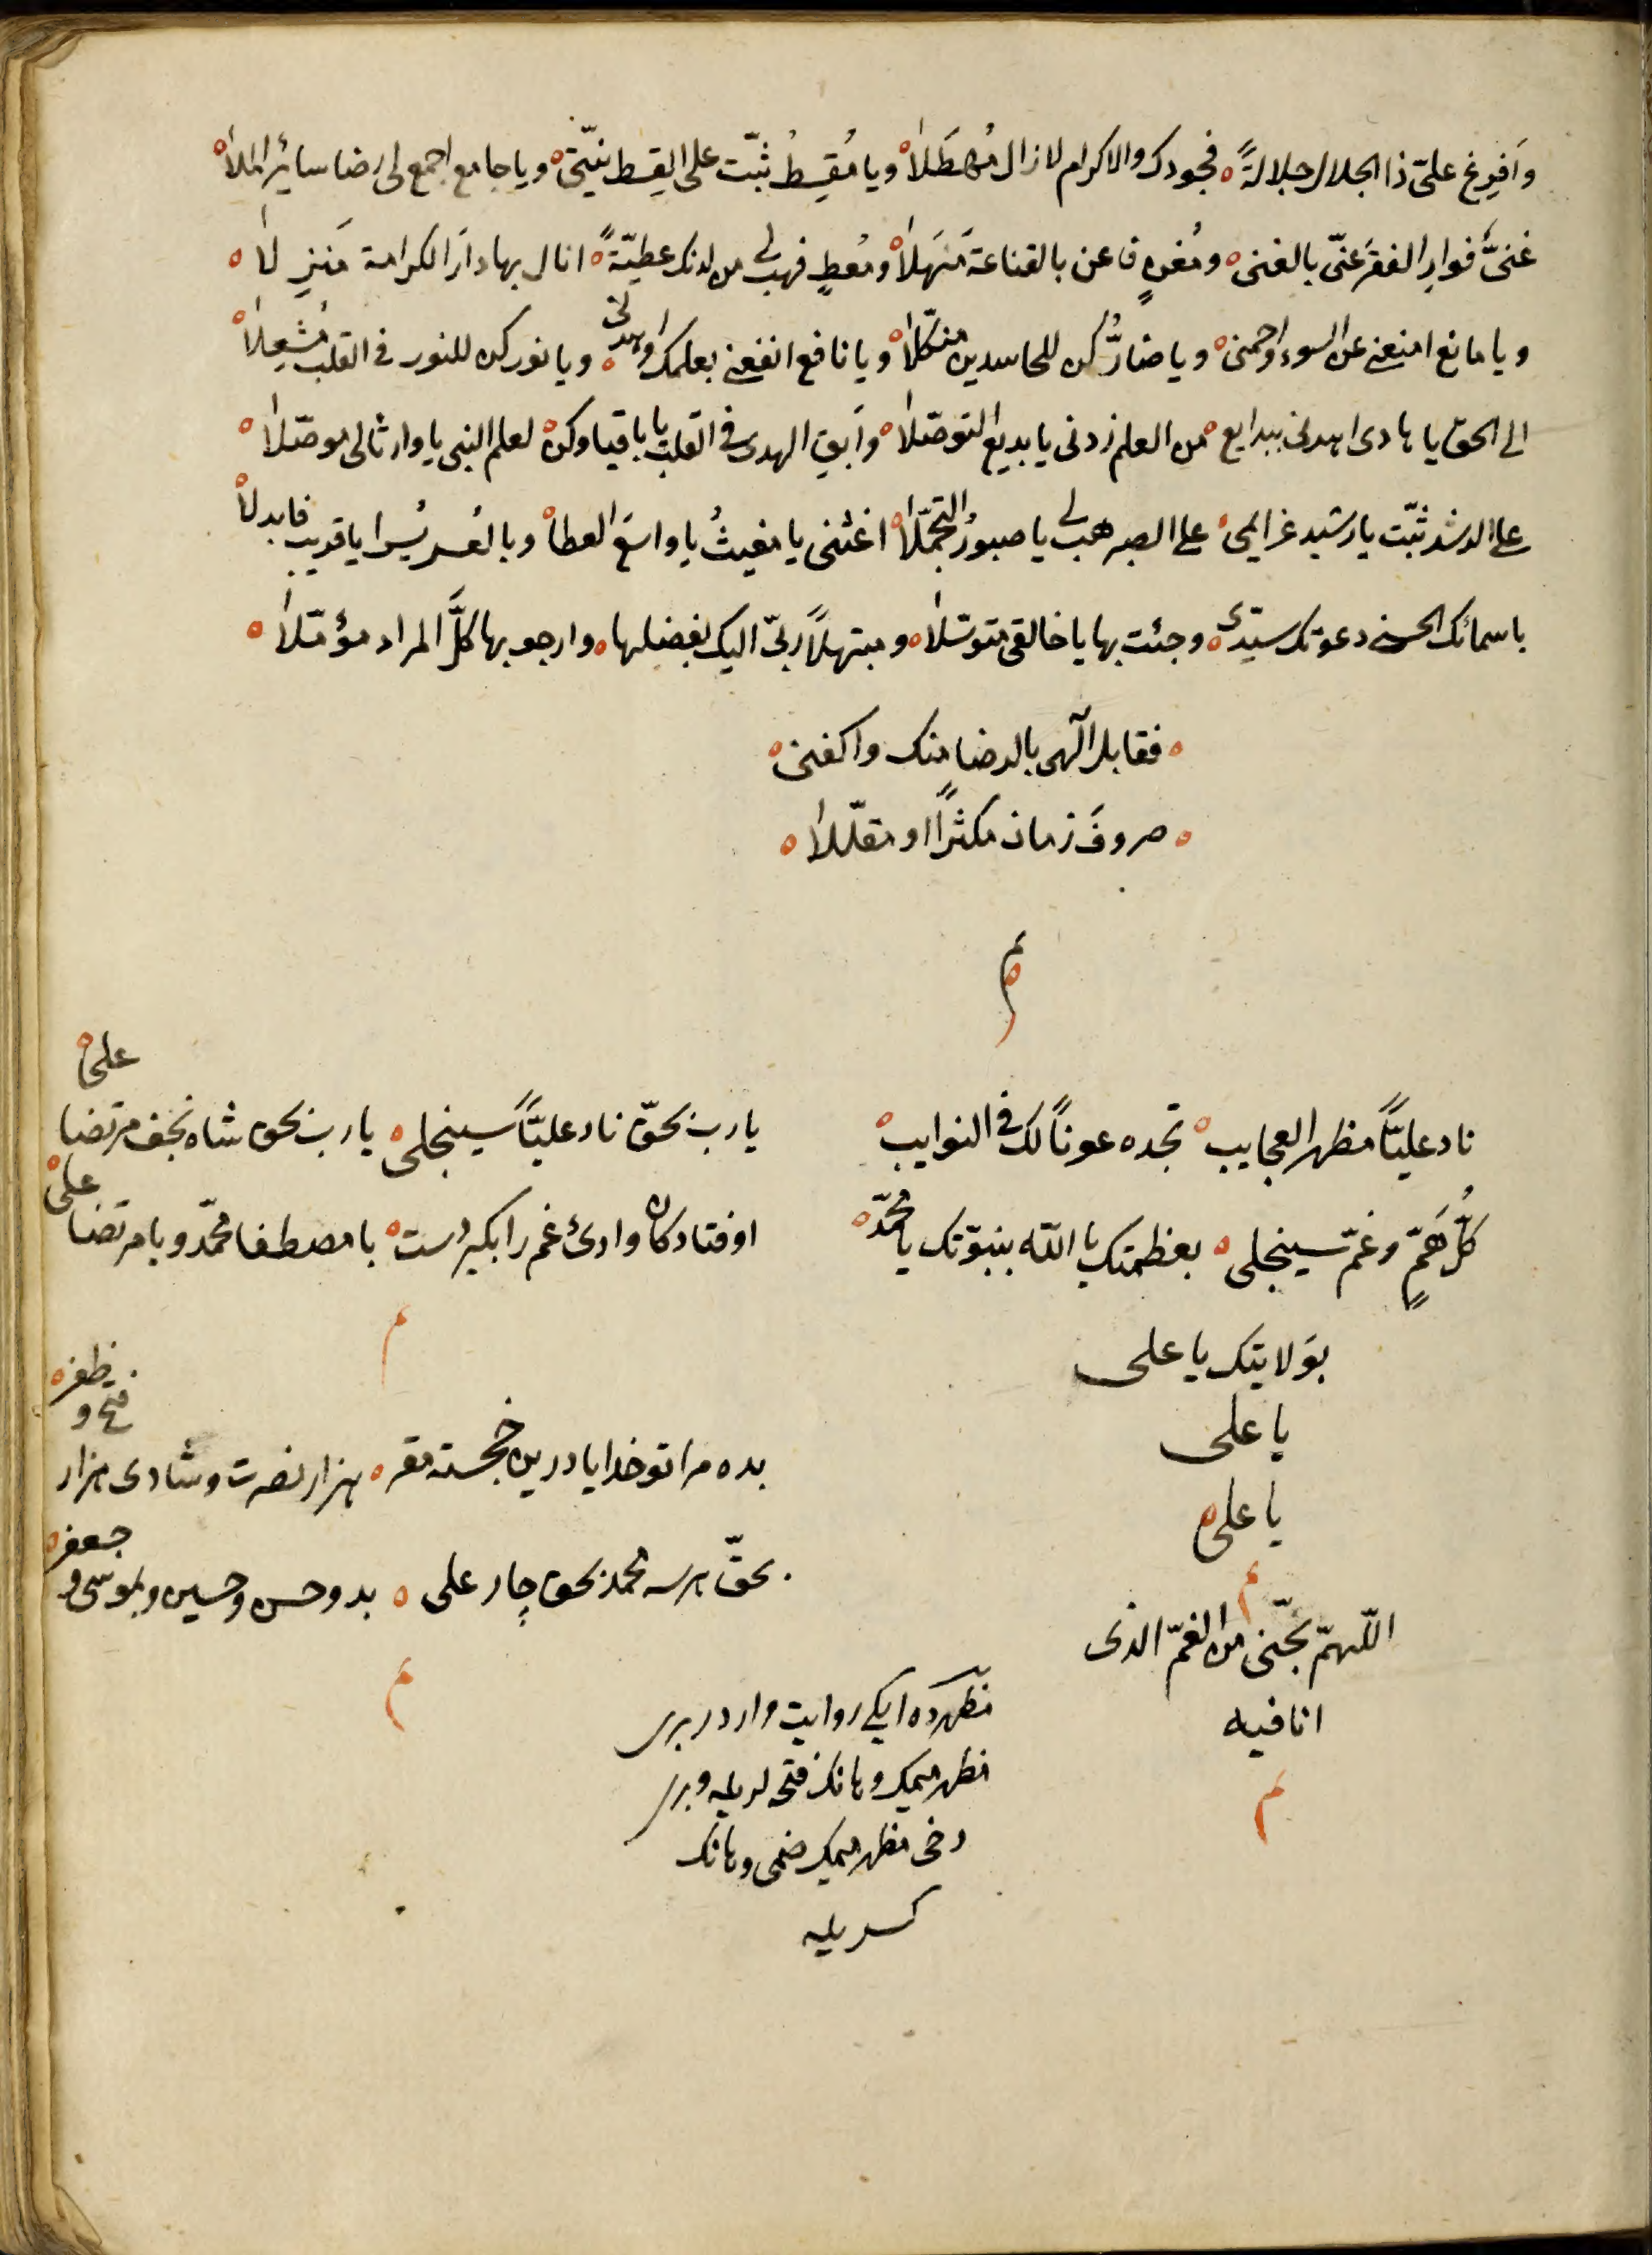 وَاَفرِغ علیّ ذا الجلال جلالةً ه فجودک والاکرام لا زال مُهطَلاً ه ویا مُقسِطُ ثبّت علی القِسط نیّتی ه ویا جامع اجمع لی رضا سائر الملاً ه
غنیٌّ فوارِ الفقر عنّی بالغنی ه ومُغنٍ فاعن بالقناعة مَنهَلاً ه ومُعطٍ فهب لی من لدنک عطیّةً ه انال بها دارَ الکرامة مَنزِلاً ه
ویا مانع امنعنی عن السوء واحمنی ه ویا ضارُّ کن للحاسدین منکّلاً ه ویا نافع انفعنی بعلمک واهدنی ه ویا نور کن للنور فی القلب مُشعِلاً ه
الی الحق یا هادی اهدنی ببدایع ه من العلم زدنی یا بدیع التوصّلاً ه وَاَبقِ الهدی فی القلب یا باقیا وکن ه لعلم النبی یا وارثا لی موصّلاً ه
علی الرشد ثبّت یا رشید عزایمی ه علی الصبر هب لی یا صبورُ التجمّلاً ه اغثنی یا مغیثُ یا واسعَ العطاً ه وبالعُسر یُسرا یا قریب فابدلاً ه
باسمائک الحسنی دعوتک سیّدی ه وجئت بها یا خالقی متوسّلاً ه ومبتهلاً ربّی الیک بفضلها ه وارجو بها کلَّ المراد مؤمّلاً ه
ه فقابل الٓهی بالرضا منک واکفنی ه
ه صروفَ زمان مکثراً او مقلّلاً ه
م
ناد علیّاً مظهر العجایب ه تجده عوناً لک فی النوایب ه
کُلّ هَمٍّ وغمّ سینجلی ه بعظمتک یا اللّه بنبوّتک یا محمّد ه
بوَلایتک یا علی
یا علی
یا علی ه
م
اللّهمّ نجّنی من الغمّ الذی
انا فیه
م
یارب بحقّ ناد علیّاً سینجلی ه یارب بحق شاه نجف مرتضا علی ه
اوفتادکان وادیٔ غم را بکیر دست ه یا مصطفا محمّد و یا مرتضا علی ه
م
بده مرا تو خدایا درین خجسته مقر ه هزار نصرت و شادی هزار فتح و ظفر ه
بحقّ هر سه محمد بحق چار علی ه بدو حسن و حسین و بموسی و جعفر ه
م
مظهرده ایکی روایت وارد ربری
مظهر میمک وهانک فتحه لریله وبری
دخی مظهر میمک ضمی وهانک
کسریله